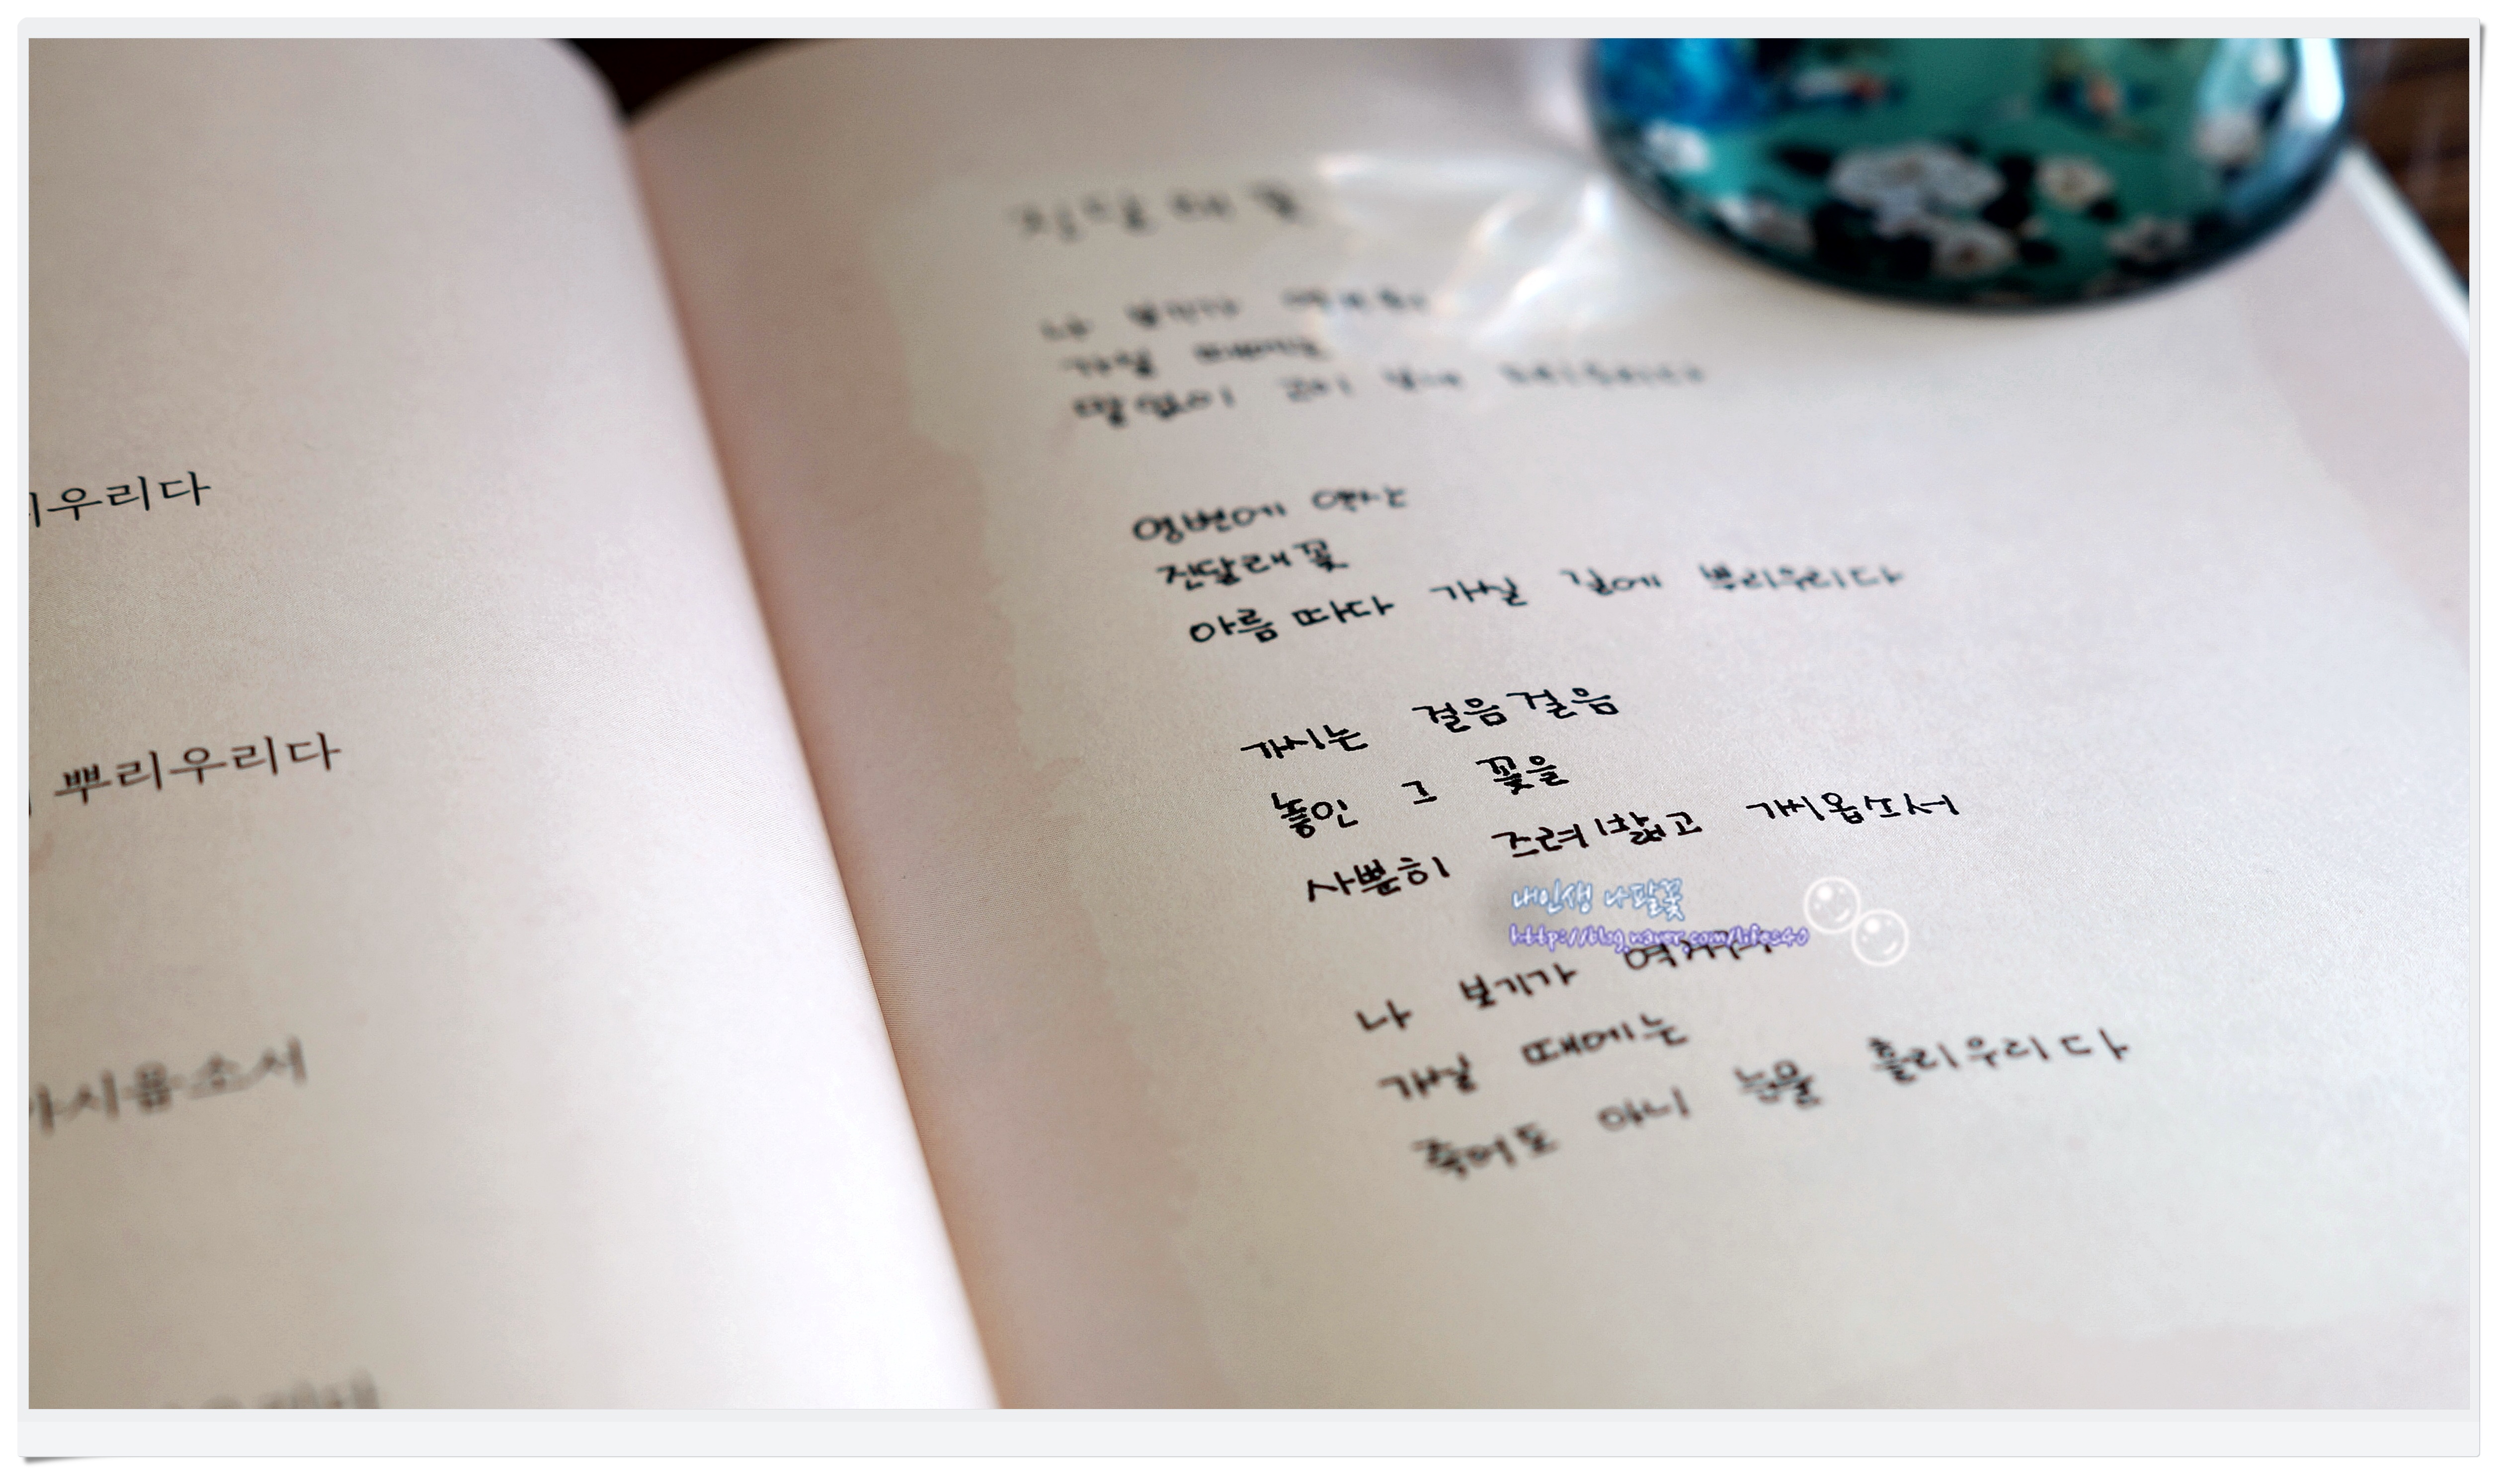 우리다
뿌리우리다
시옵소서
진달래꽃
나 보기가 역겨워
가실 때에는
말없이 고이 보내 드리우리다
영변에 약산
진달래꽃
아름 따다 가실 길에 뿌리우리다
가시는 걸음걸음
놓인 그 꽃을
사뿐히 즈려밟고 가시옵소서
내인생 나팔꽃
http://blog.naver.com/lifes40
나 보기가 역겨워
가실 때에는
죽어도 아니 눈물 흘리우리다